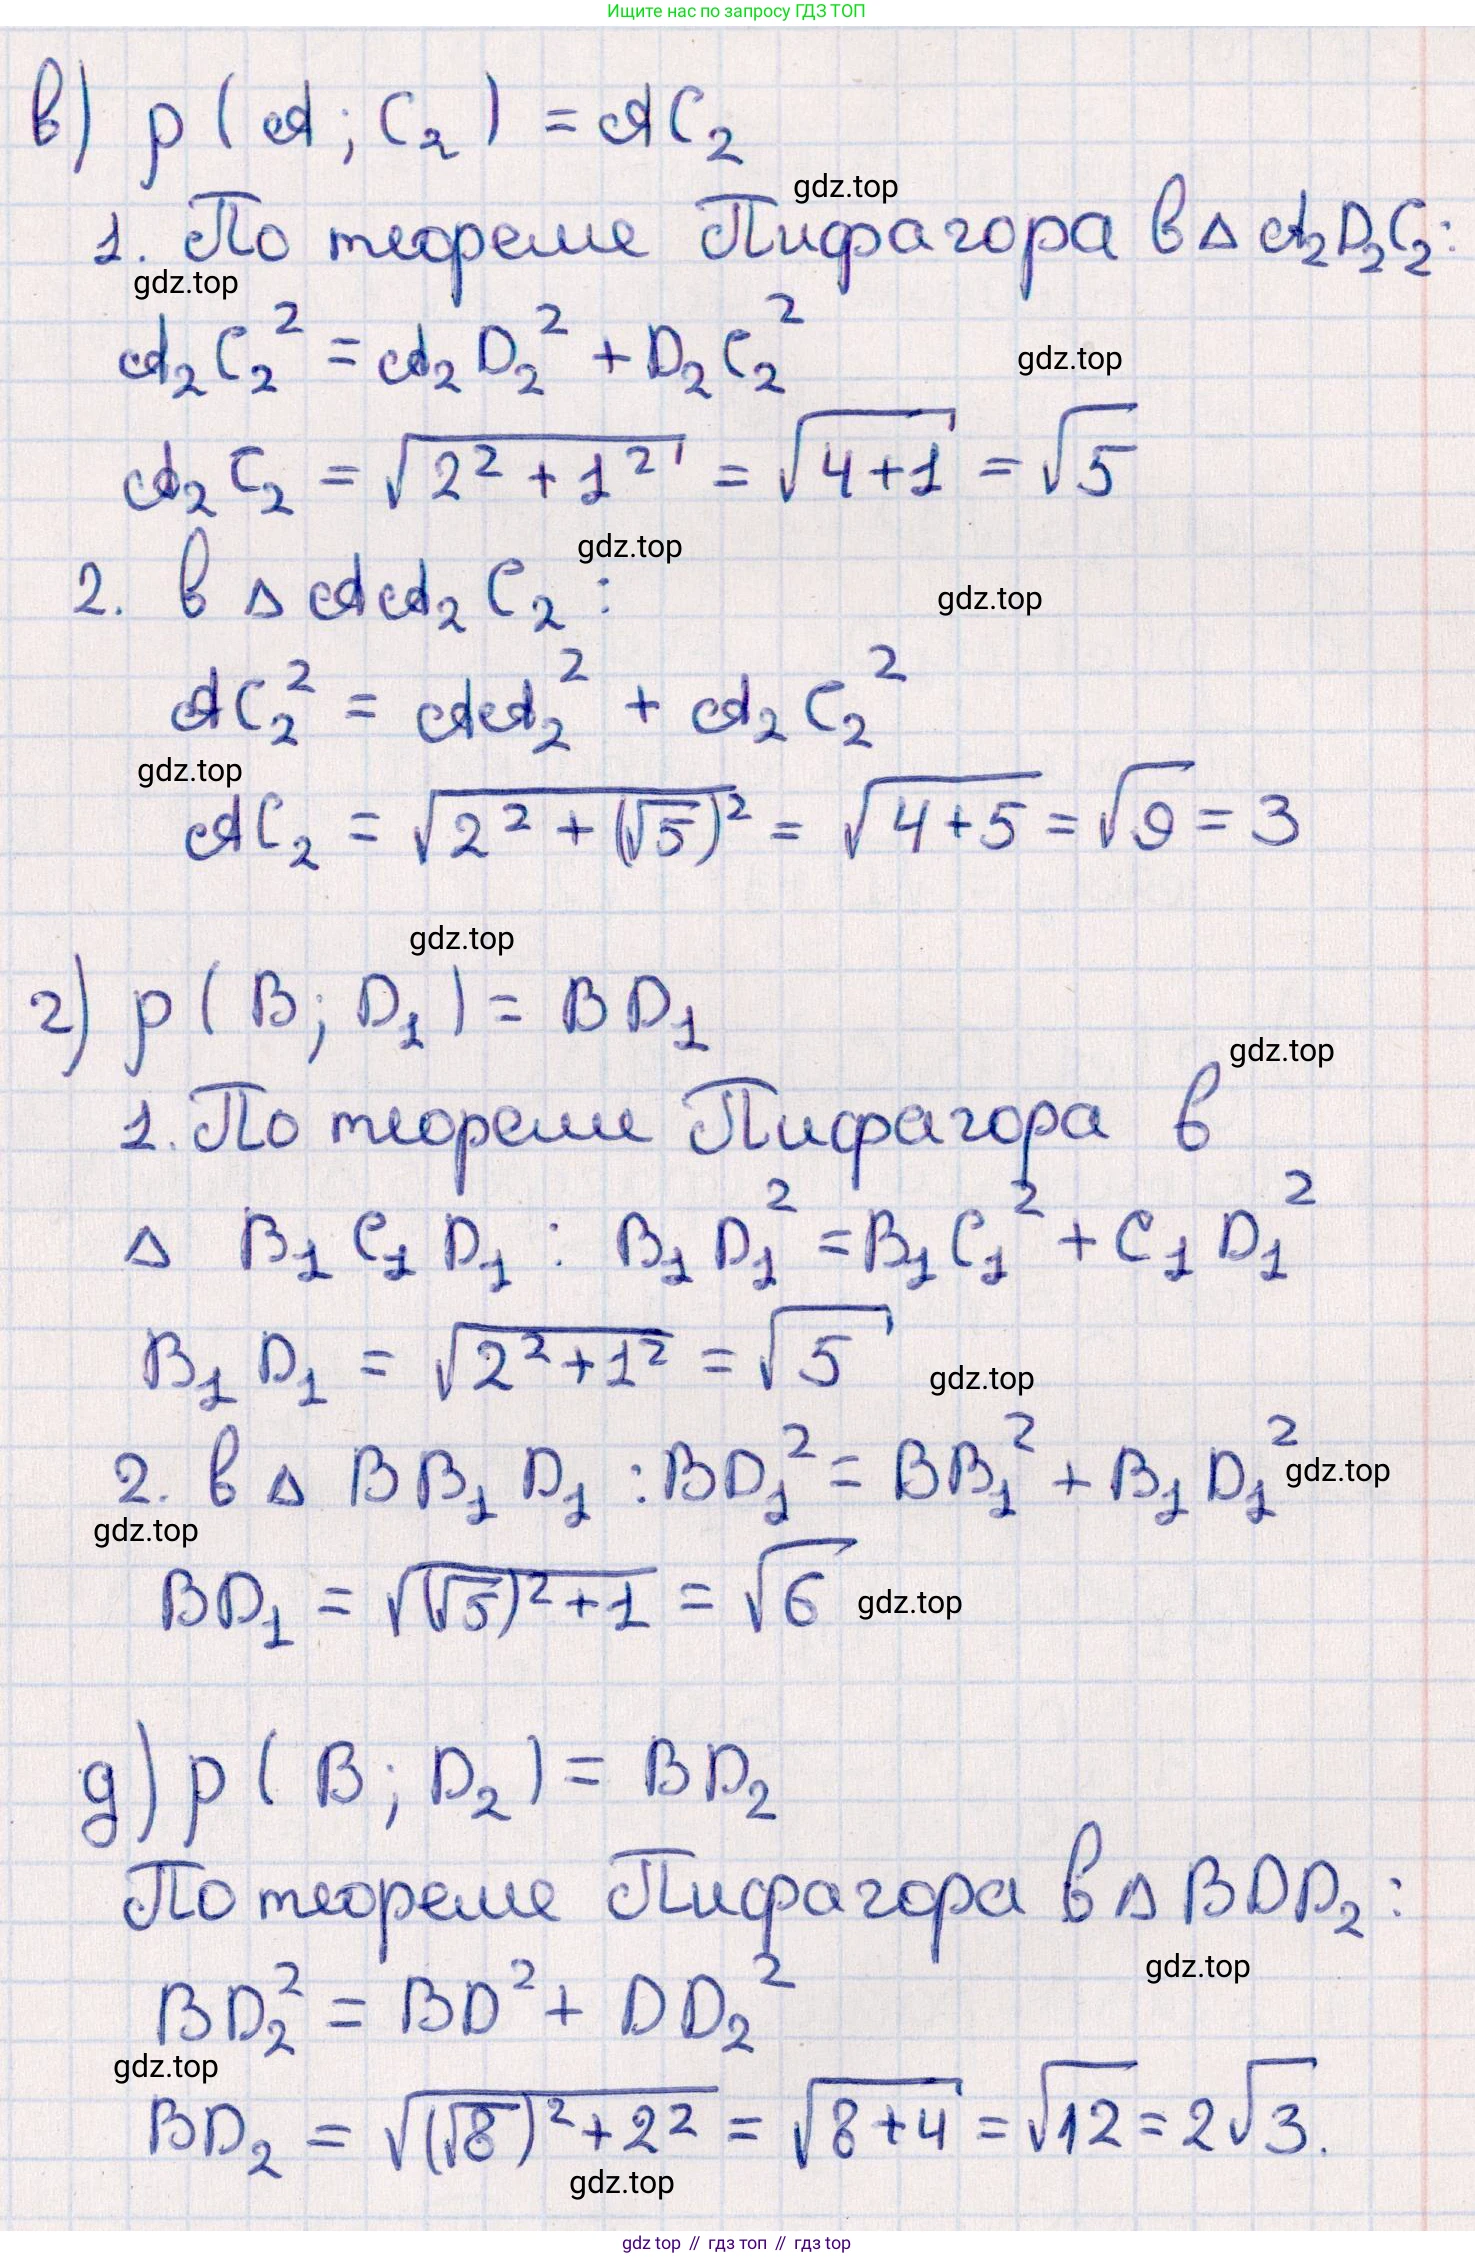 Ищите нас по запросу ГДЗ ТОП
в) ρ(A; C₂) = AC₂
gdz.top
1. По теореме Пифагора в △A₂D₂C₂:
gdz.top
A₂C₂² = A₂D₂² + D₂C₂²
gdz.top
A₂C₂ = √(2² + 1²) = √(4+1) = √5
gdz.top
2. в △AA₂C₂:
gdz.top
AC₂² = AA₂² + A₂C₂²
gdz.top
AC₂ = √(2² + (√5)²) = √(4+5) = √9 = 3
gdz.top
г) ρ(B; D₁) = BD₁
gdz.top
1. По теореме Пифагора в
△ B₁C₁D₁ : B₁D₁² = B₁C₁² + C₁D₁²
B₁D₁ = √(2²+1²) = √5
gdz.top
2. в △ BB₁D₁ : BD₁² = BB₁² + B₁D₁²
gdz.top
gdz.top
BD₁ = √((√5)²+1) = √6
gdz.top
д) ρ(B; D₂) = BD₂
По теореме Пифагора в △BDD₂:
gdz.top
BD₂² = BD² + DD₂²
gdz.top
BD₂ = √((√8)²+2²) = √(8+4) = √12 = 2√3.
gdz.top
gdz top // гдз топ // гдз top